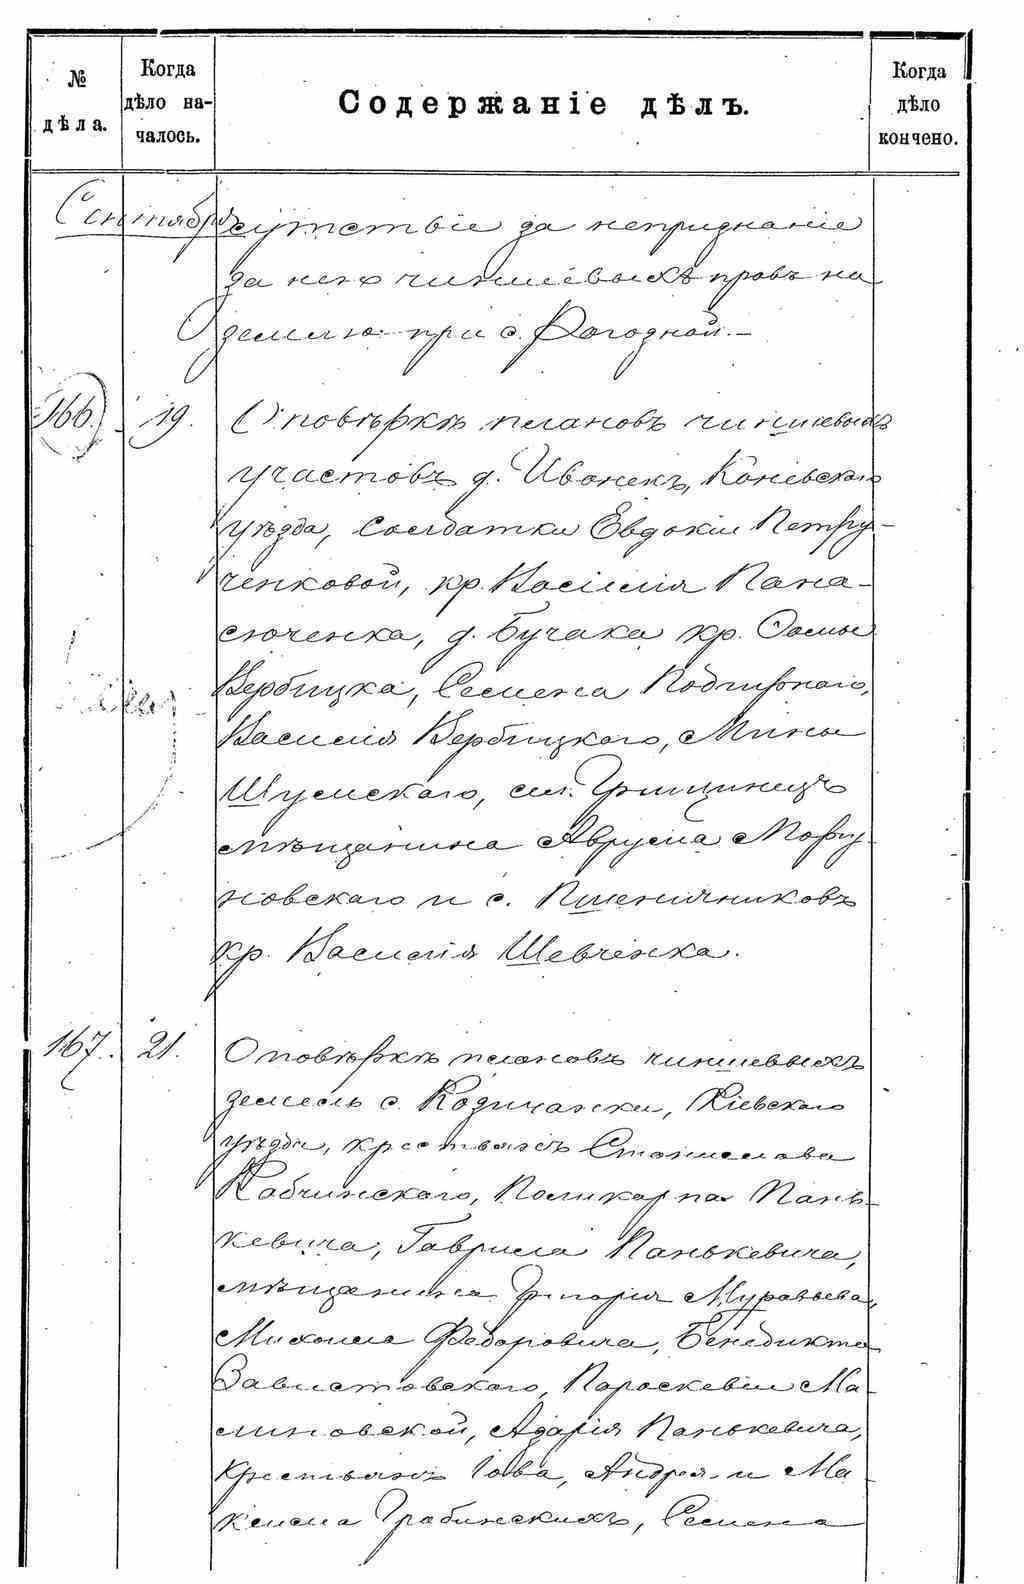 № дѣла.
Когда дѣло началось.
Содержаніе дѣлъ.
Когда дѣло кончено.
Сентября
сутствіе за непризнаніе
за нею чиншевыхъ правъ на
землю при с. Рогозной.—
166. 19. О повѣркѣ плановъ чиншевыхъ
участовъ д. Иванекъ, Каневскаго
уѣзда, солдатки Евдокіи Петру-
ченковой, кр. Василія Пана-
сюченка, д. Бучака кр. Фомы
Вербицка, Семена Подгирнаго,
Василія Вербицкаго, Мины
Шумскаго, сел. Грищинецъ
мѣщанина Аврума Моргу
новскаго и с. Пшеничниковъ
кр. Василія Шевченка.
167. 21. О повѣркѣ плановъ чиншевыхъ
земель с. Кодичанки, Кіевскаго
уѣзда, крестьянъ Станислава
Кабчинскаго, Поликарпа Пань-
кевича, Гаврила Панькевича,
мѣщанина Григорія Муравьева,
Михаила Федоровича, Бенедикта
Завистовскаго, Параскевіи Ма-
линовской, Азарія Панькевича,
Крестьянъ Іова, Андрея и Ма
ксима Грабинскихъ, Семена